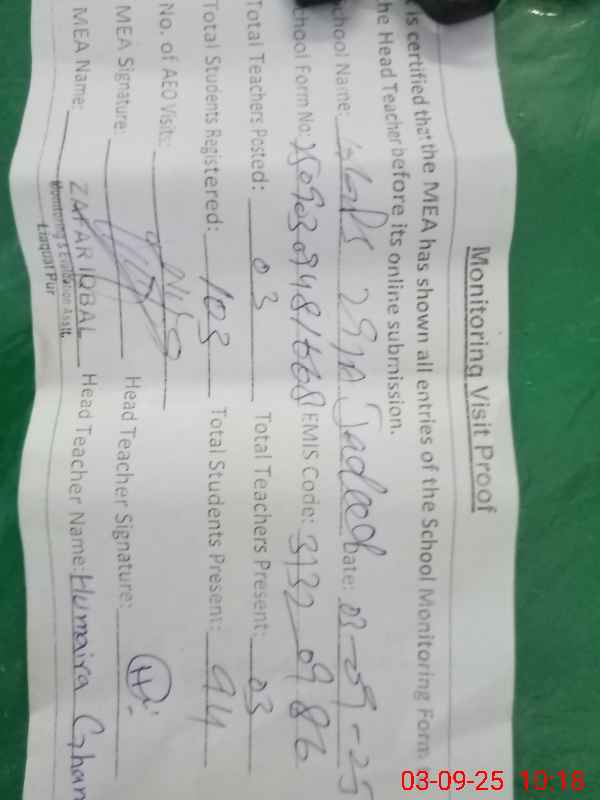 Monitoring Visit Proof
is certified that the MEA has shown all entries of the School Monitoring Form
he Head Teacher before its online submission.
chool Name: 29/A Jadeed Date: 03-09-25
chool Form No: EMIS Code: 31320986
Total Teachers Posted: 03 Total Teachers Present: 03
Total Students Registered: 103 Total Students Present: 94
No. of AEO Visit:
MEA Signature: Head Teacher Signature:
MEA Name: ZAFAR IQBAL Head Teacher Name: Humaira Ghan
Monitoring & Evaluation Asstt.
Liaquat Pur
03-09-25 10:18